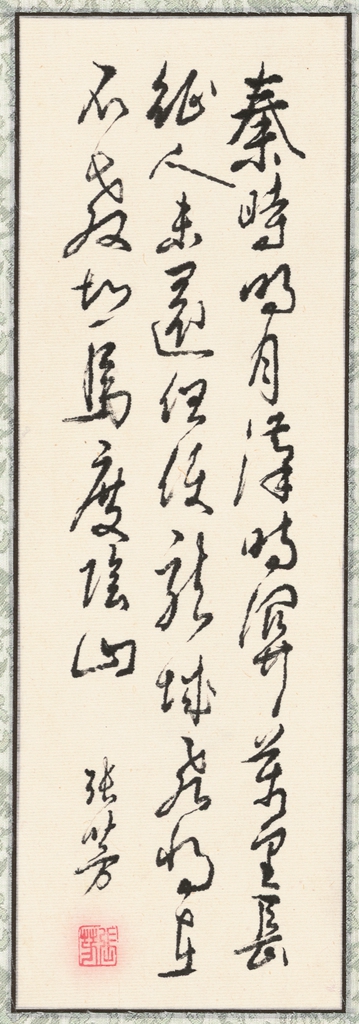 秦時明月漢時關萬里長
征人未還但使龍城飛將在
不教胡馬度陰山
張芳
張芳